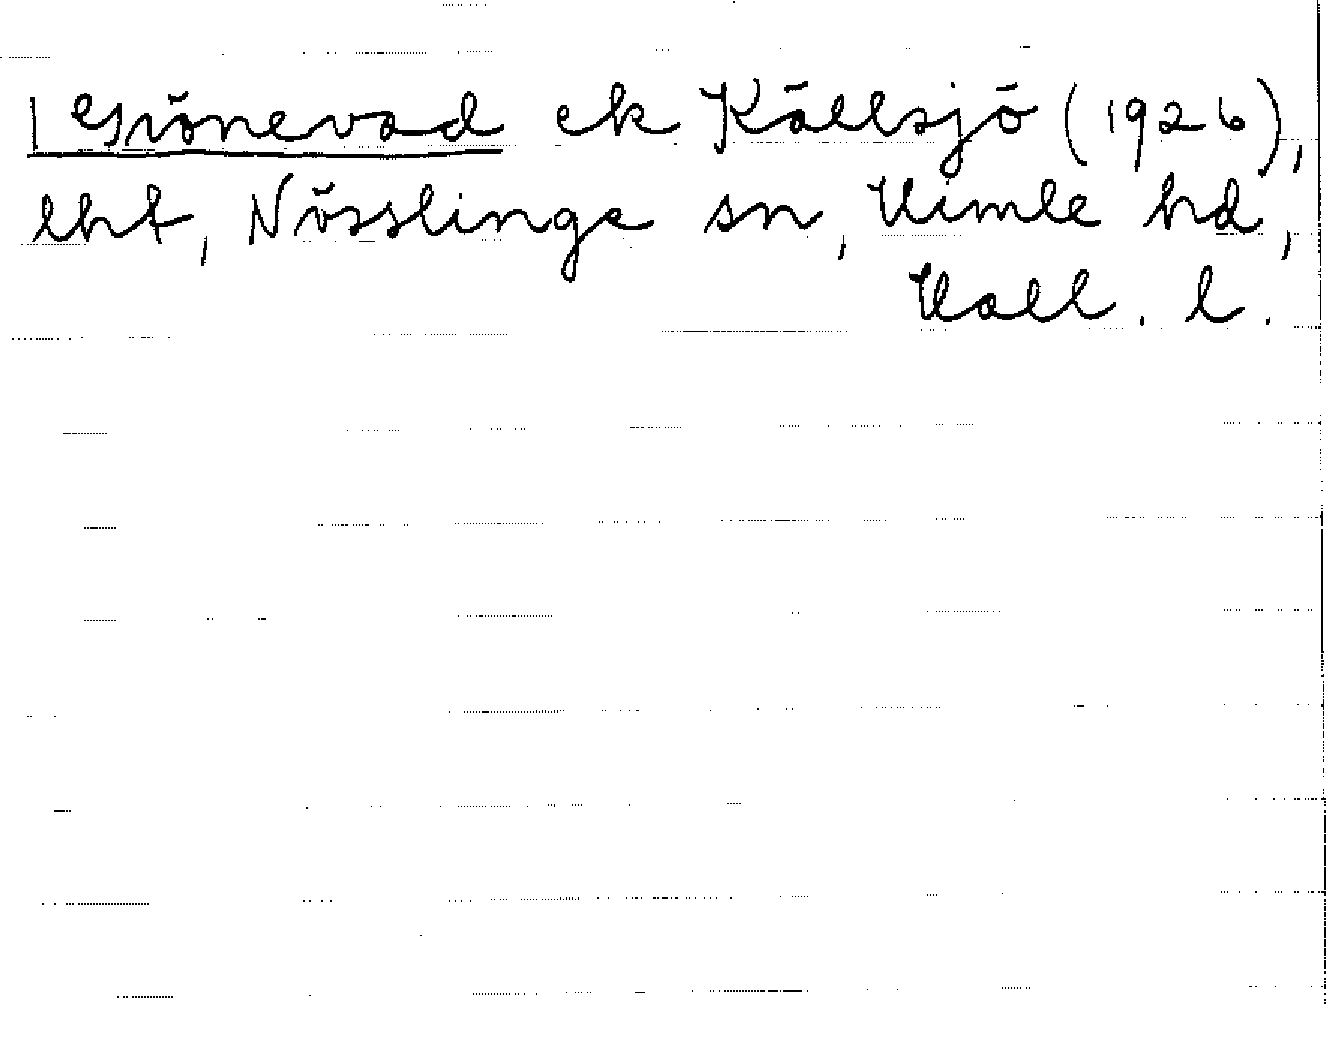 | Grönevad ek Källsjö (1926),
lht, Nösslinge sn, Himle hd,
Hall. l.